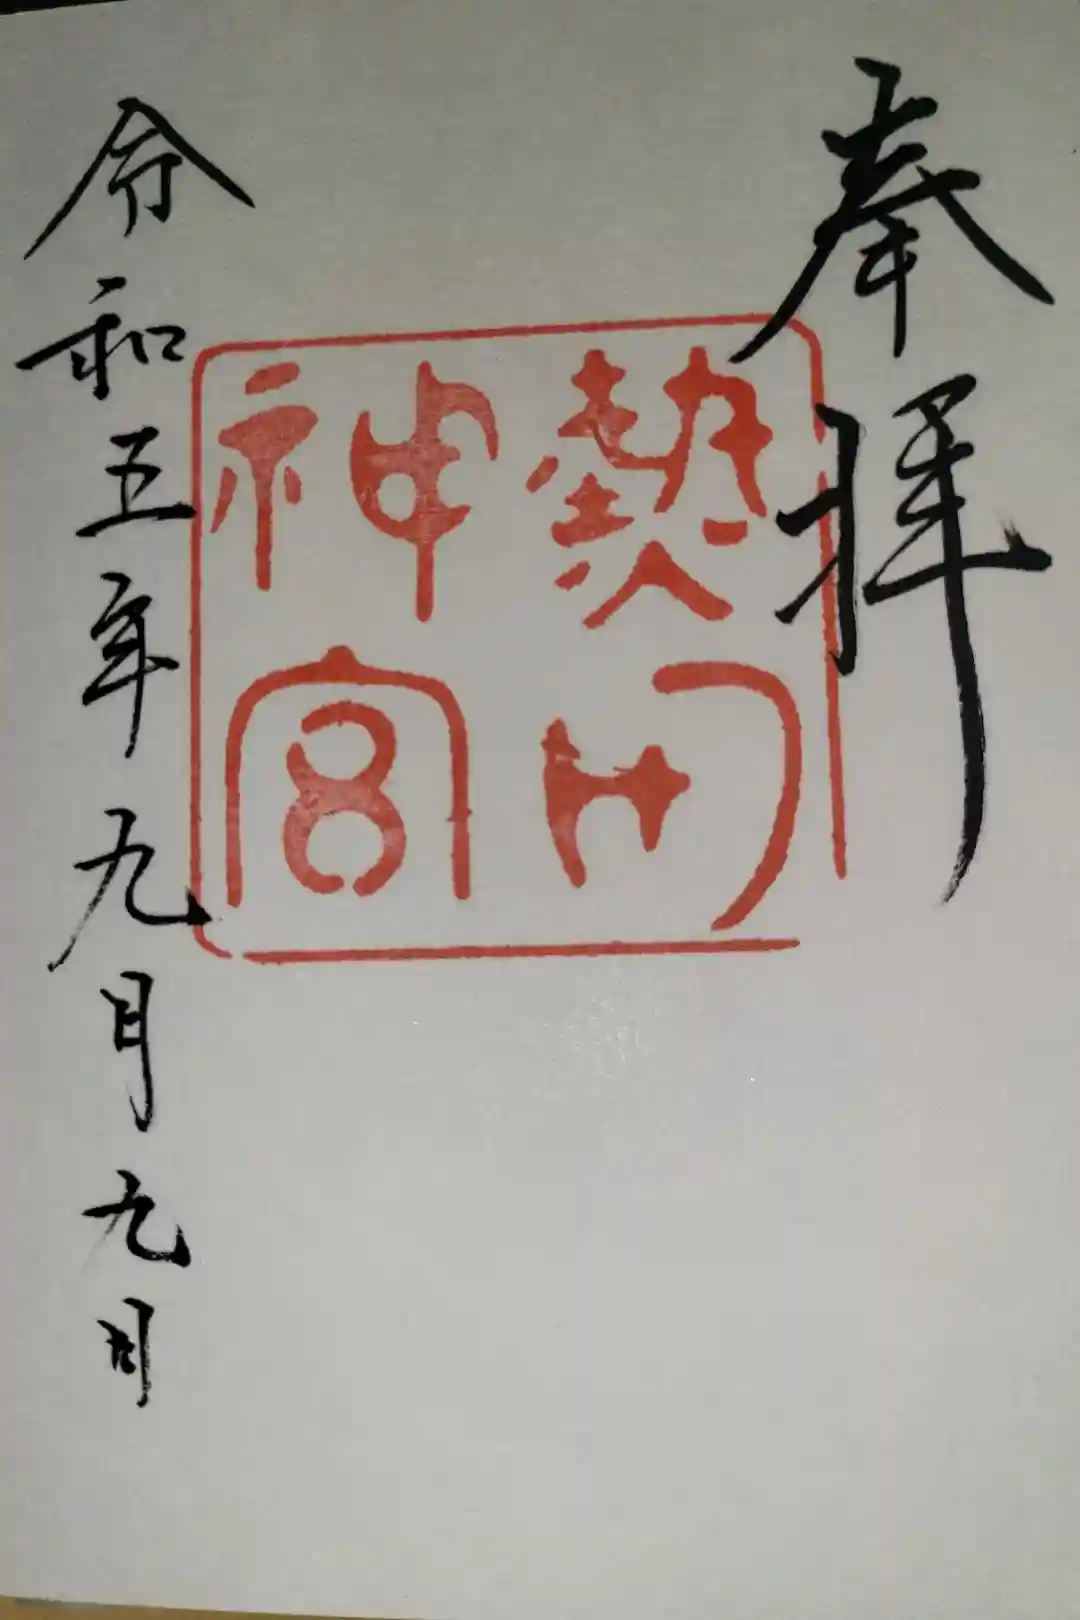 奉拝
熱田
神宮
令和五年九月九日